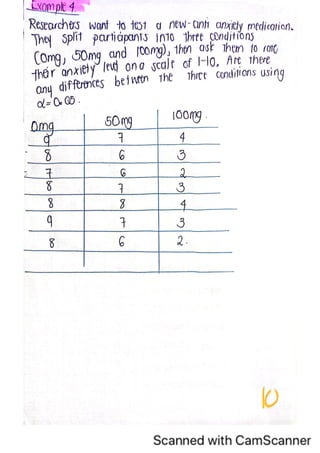 Example 4
Researchers want to test a new-anti anxiety medication.
They split participants into three conditions
(0mg, 50mg and 100mg), then ask them to rate
their anxiety level on a scale of 1-10. Are there
any differences between the three conditions using
α=0.05.
0mg 50mg 100mg.
9 7 4
8 6 3
7 6 2
8 7 3
8 8 4
9 7 3
8 6 2.
10
Scanned with CamScanner